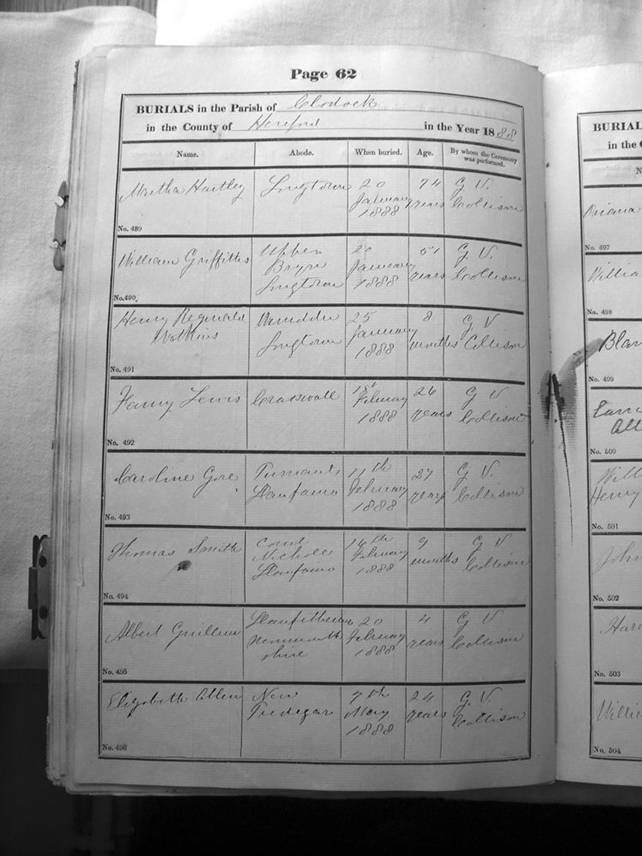 Page 62
BURIALS in the Parish of Clodock
in the County of Hereford in the Year 1888
Name. Abode. When buried. Age. By whom the Ceremony was performed.
Martha Hartley Longtown 20 January 1888 74 years G. V. Collison
No. 489
William Griffiths Upper Bryn Longtown 20 January 1888 51 years G. V. Collison
No. 490.
Henry Reginald Watkins Longtown 25 January 1888 8 months G V Collison
No. 491
Fanny Lewis Craswall 1st February 1888 26 years G V Collison
No. 492
Caroline Gore Llanfamo 11th February 1888 27 years G V. Collison
No. 493
Thomas Smith Court Nichole Llanfamo 14th February 1888 9 months G V Collison
No. 494
Albert Monmouth shire 20 February 1888 4 years G V Collison
No. 495
Elizabeth Allen New Tredegar 9th May 1888 24 years G. V. Collison
No. 496
BURIAL
in the
N
No. 497
Willia
No. 498
Blan
No. 499
No. 500
Will
Henry
No. 501
John
No. 502
Har
No. 503
Willi
No. 504